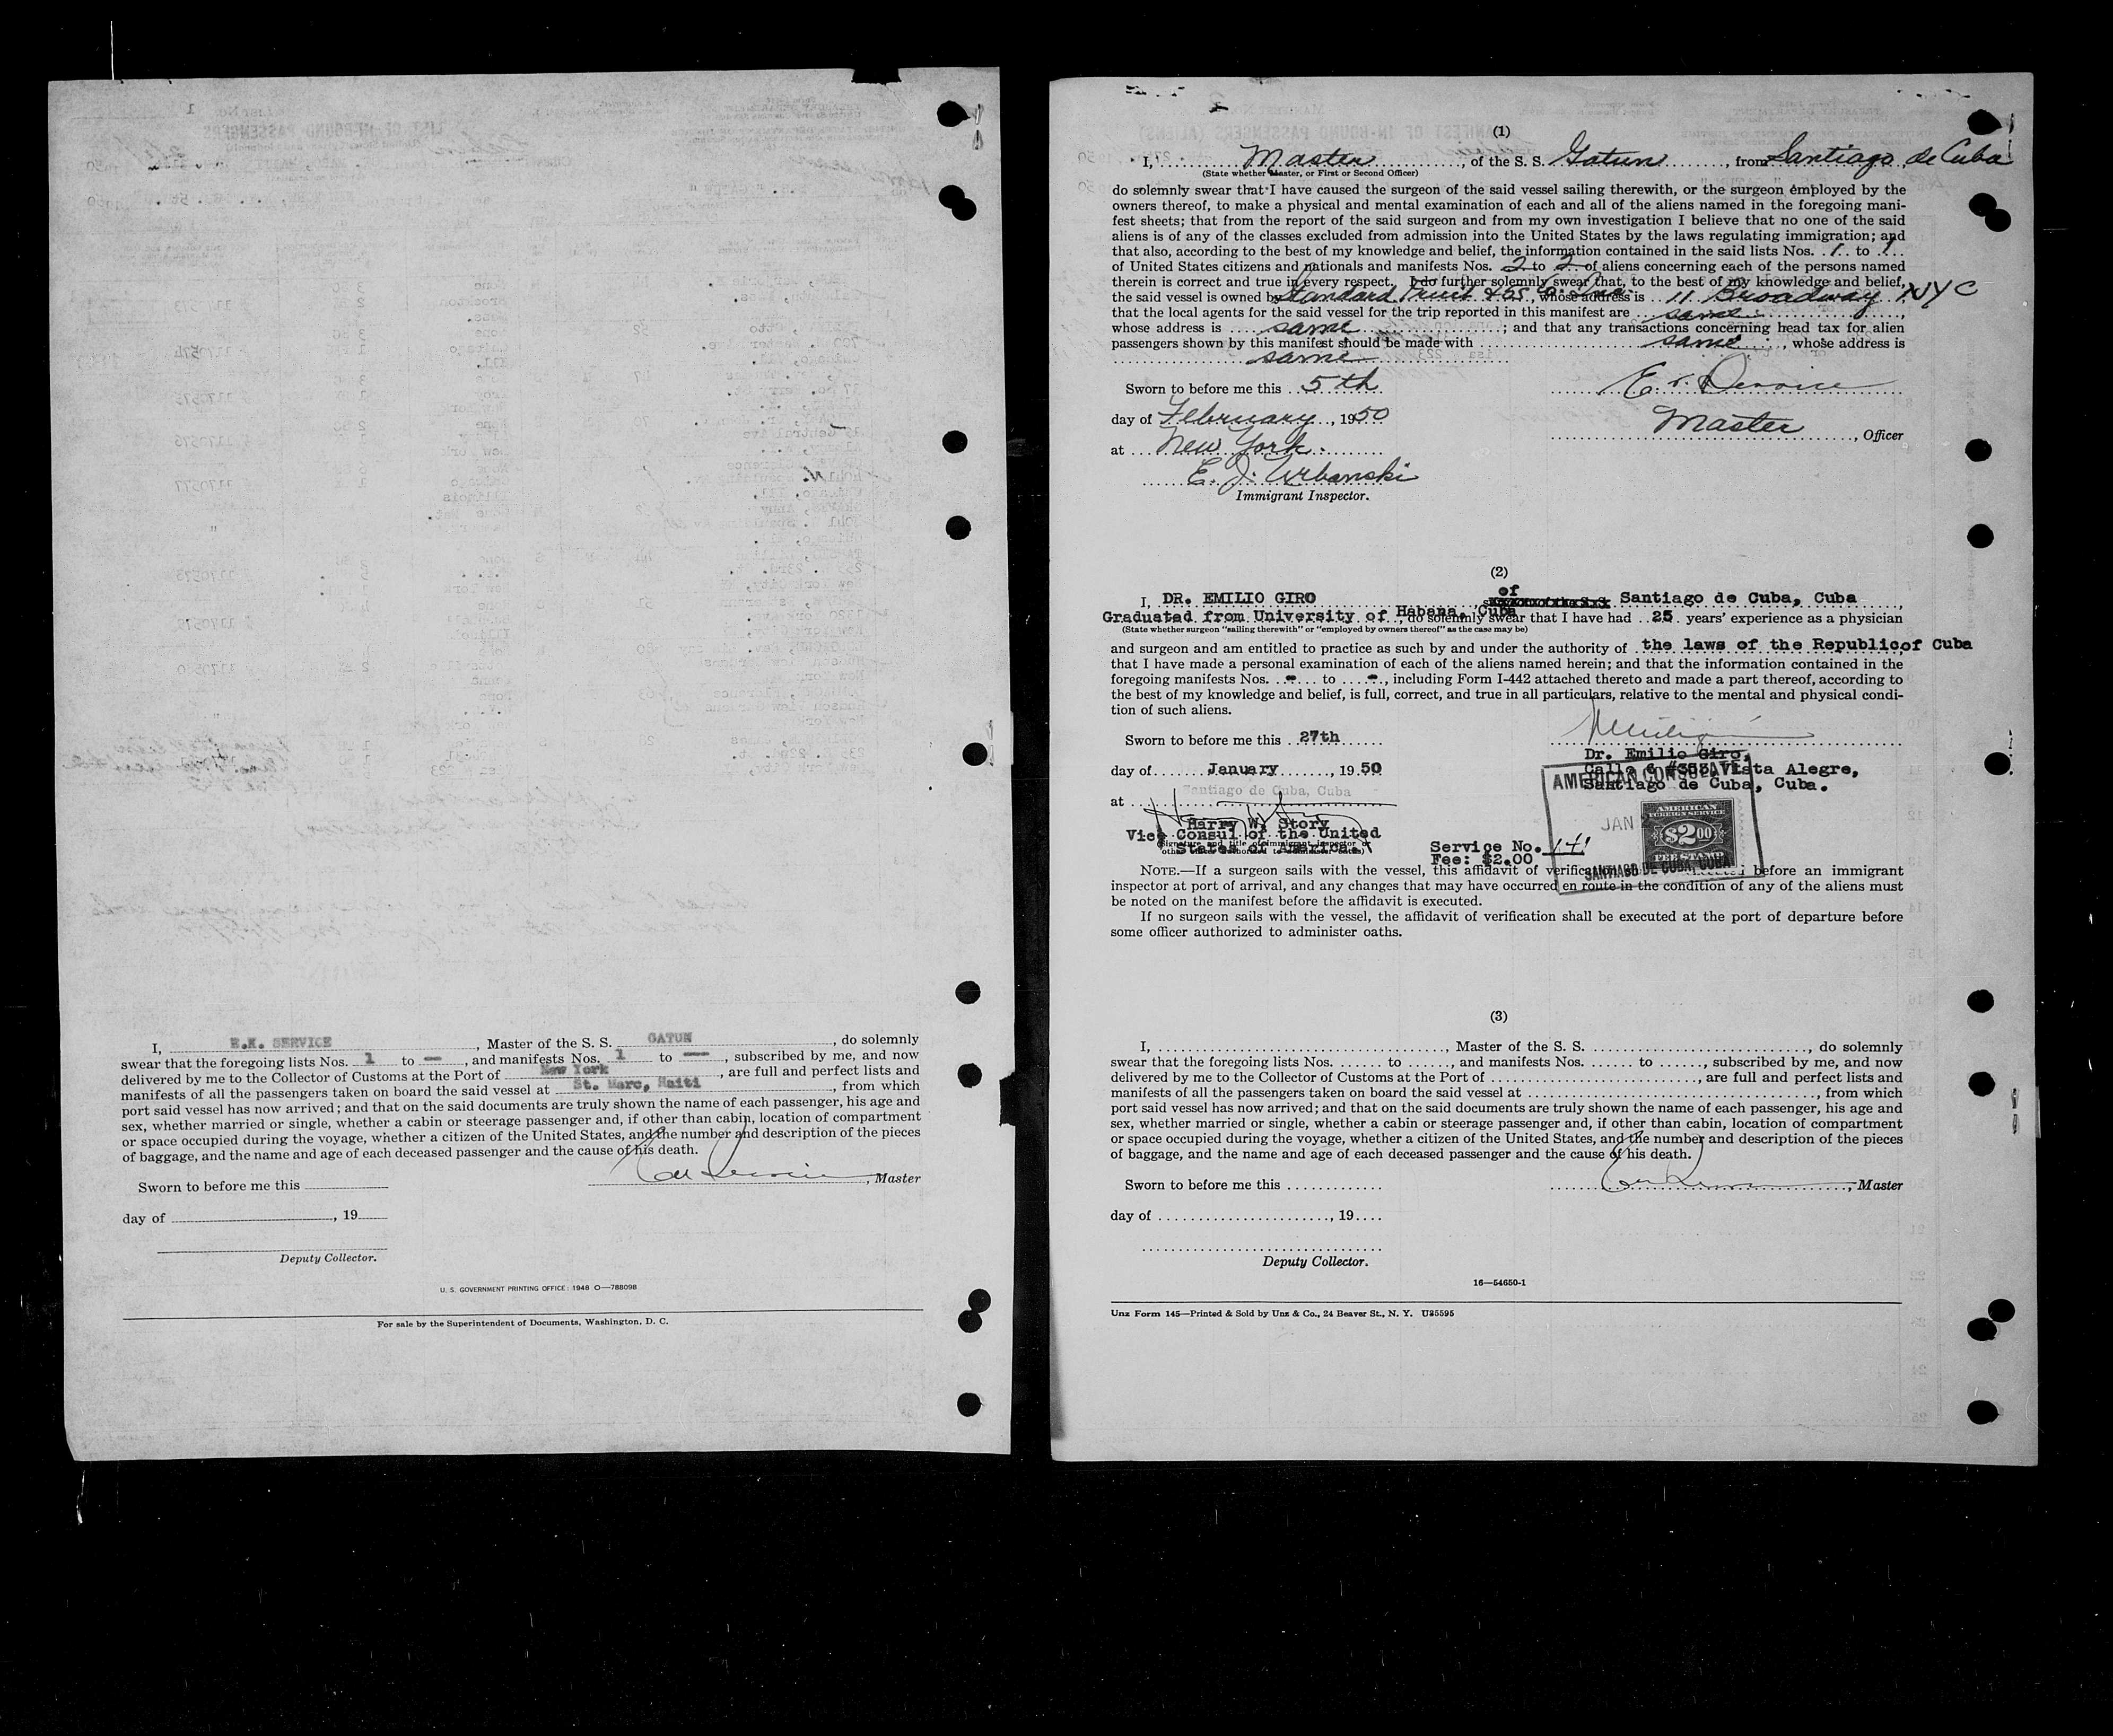 I, E.K. SERVICE, Master of the S. S. GATUN, do solemnly
swear that the foregoing lists Nos. 1 to —, and manifests Nos. 1 to —, subscribed by me, and now
delivered by me to the Collector of Customs at the Port of New York, are full and perfect lists and
manifests of all the passengers taken on board the said vessel at St. Marc, Haiti, from which
port said vessel has now arrived; and that on the said documents are truly shown the name of each passenger, his age and
sex, whether married or single, whether a cabin or steerage passenger and, if other than cabin, location of compartment
or space occupied during the voyage, whether a citizen of the United States, and the number and description of the pieces
of baggage, and the name and age of each deceased passenger and the cause of his death.
, Master
Sworn to before me this
day of , 19
Deputy Collector.
U. S. GOVERNMENT PRINTING OFFICE: 1948 O—788098
For sale by the Superintendent of Documents, Washington, D. C.
(1)
I, Master, of the S. S. Gatun, from Santiago de Cuba
(State whether Master, or First or Second Officer)
do solemnly swear that I have caused the surgeon of the said vessel sailing therewith, or the surgeon employed by the
owners thereof, to make a physical and mental examination of each and all of the aliens named in the foregoing mani-
fest sheets; that from the report of the said surgeon and from my own investigation I believe that no one of the said
aliens is of any of the classes excluded from admission into the United States by the laws regulating immigration; and
that also, according to the best of my knowledge and belief, the information contained in the said lists Nos. 1 to 1
of United States citizens and nationals and manifests Nos. 2 to 2 of aliens concerning each of the persons named
therein is correct and true in every respect. I do further solemnly swear that, to the best of my knowledge and belief,
the said vessel is owned by Standard Fruit & SS Co. Inc., whose address is 11 Broadway NYC
that the local agents for the said vessel for the trip reported in this manifest are same,
whose address is same; and that any transactions concerning head tax for alien
passengers shown by this manifest should be made with same, whose address is
same
Sworn to before me this 5th
day of February, 1950
at New York.
E. J. Urbanski
Immigrant Inspector.
E. K. Service
Master, Officer
(2)
of
I, DR. EMILIO GIRO Santiago de Cuba, Cuba,
Graduated from University of Habana, Cuba, do solemnly swear that I have had 25 years' experience as a physician
(State whether surgeon "sailing therewith" or "employed by owners thereof" as the case may be)
and surgeon and am entitled to practice as such by and under the authority of the laws of the Republic of Cuba
that I have made a personal examination of each of the aliens named herein; and that the information contained in the
foregoing manifests Nos. - to -, including Form I-442 attached thereto and made a part thereof, according to
the best of my knowledge and belief, is full, correct, and true in all particulars, relative to the mental and physical condi-
tion of such aliens.
Sworn to before me this 27th
day of January, 1950
at Santiago de Cuba, Cuba
Harry W. Story
Vice Consul of the United
States of America
(Signature and title of immigrant inspector or
other officer authorized to administer oaths)
Dr. Emilio Giro,
Calle 6 #353 Vista Alegre,
Santiago de Cuba, Cuba.
AMERICAN CONSULATE
JAN 2
AMERICAN
FOREIGN SERVICE
$2.00
FEE STAMP
SANTIAGO DE CUBA, CUBA
Service No. 141
Fee: $2.00
NOTE.—If a surgeon sails with the vessel, this affidavit of before an immigrant
inspector at port of arrival, and any changes that may have occurred en route in the condition of any of the aliens must
be noted on the manifest before the affidavit is executed.
If no surgeon sails with the vessel, the affidavit of verification shall be executed at the port of departure before
some officer authorized to administer oaths.
(3)
I, , Master of the S. S. , do solemnly
swear that the foregoing lists Nos. to , and manifests Nos. to , subscribed by me, and now
delivered by me to the Collector of Customs at the Port of , are full and perfect lists and
manifests of all the passengers taken on board the said vessel at , from which
port said vessel has now arrived; and that on the said documents are truly shown the name of each passenger, his age and
sex, whether married or single, whether a cabin or steerage passenger and, if other than cabin, location of compartment
or space occupied during the voyage, whether a citizen of the United States, and the number and description of the pieces
of baggage, and the name and age of each deceased passenger and the cause of his death.
Sworn to before me this
, Master
day of , 19
Deputy Collector.
16—54650-1
Unz Form 145—Printed & Sold by Unz & Co., 24 Beaver St., N. Y. U25595